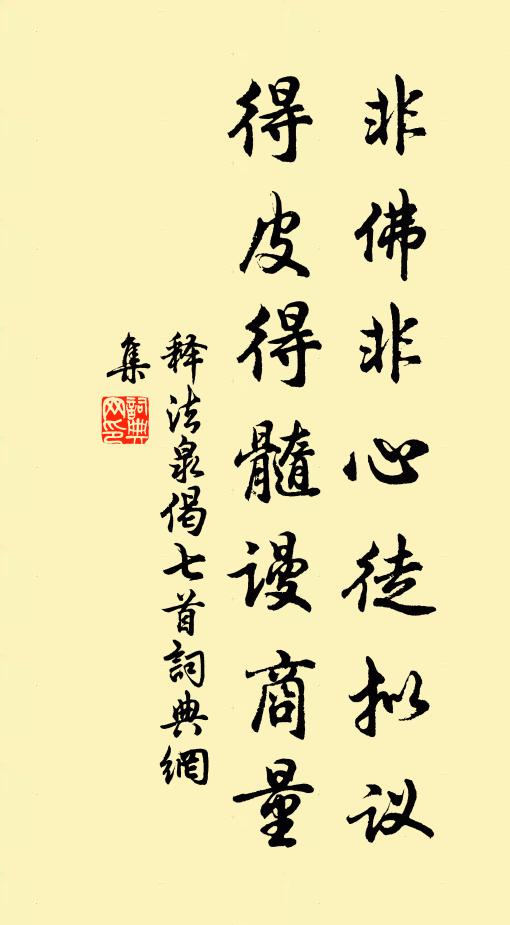 非佛非心徒拟议
得皮得髓谩商量
释法泉偈七首詞典網
集
詞典网印